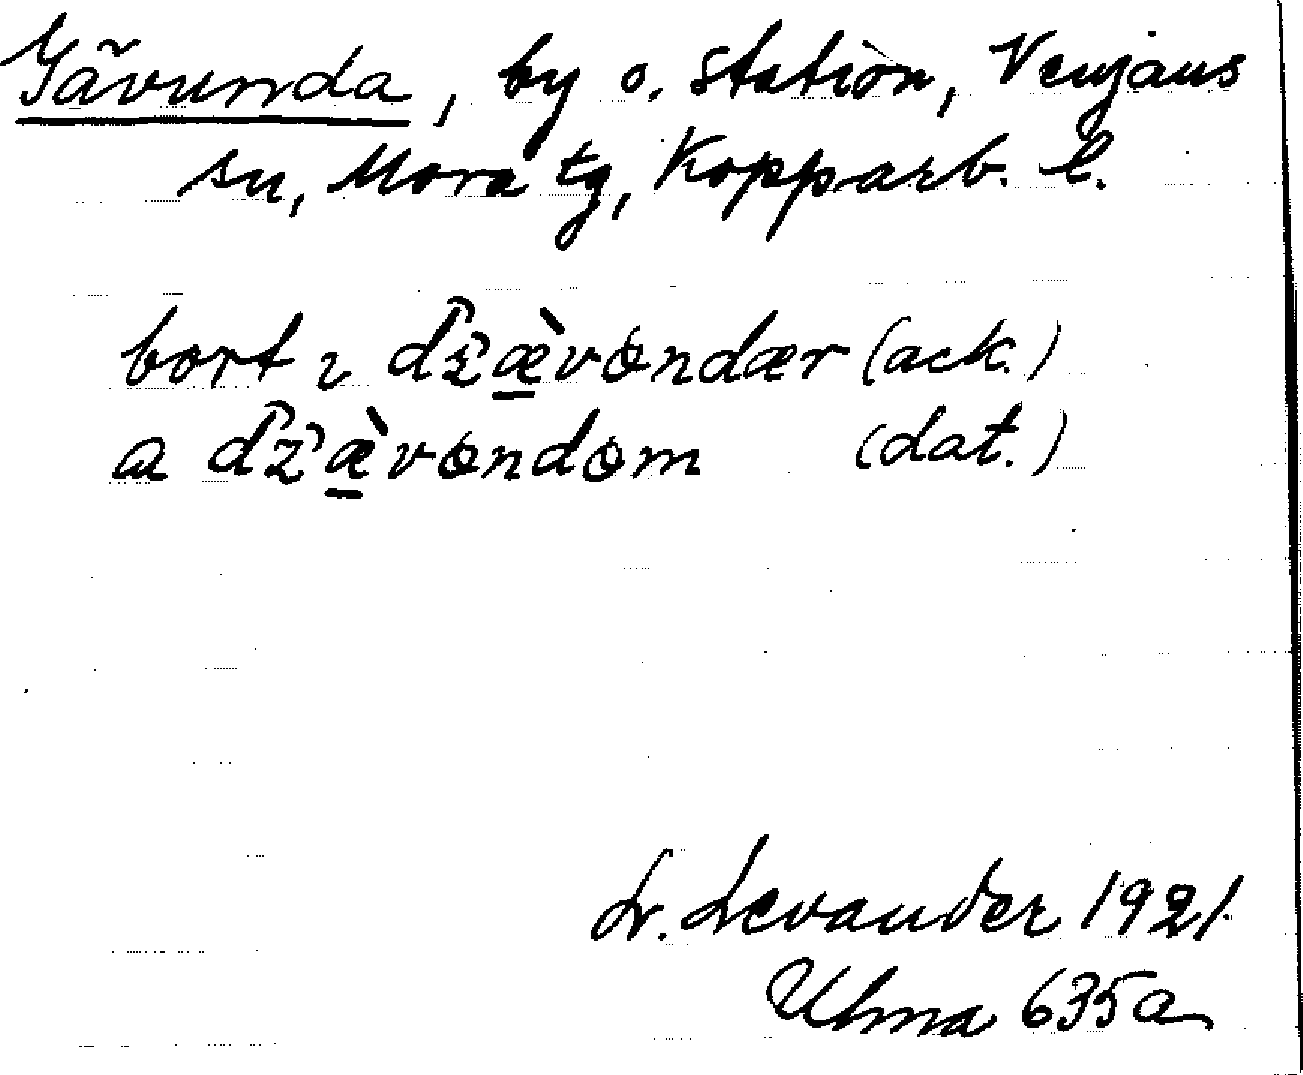 Gävunda, by o. station, Venjans
sn, Mora tg, Kopparb. l.
bort ɩ dz̀æ̀vɵndær (ack.)
a dz̀æ̀vɵndɵm (dat.)
L. Levander 1921.
Ulma 635a